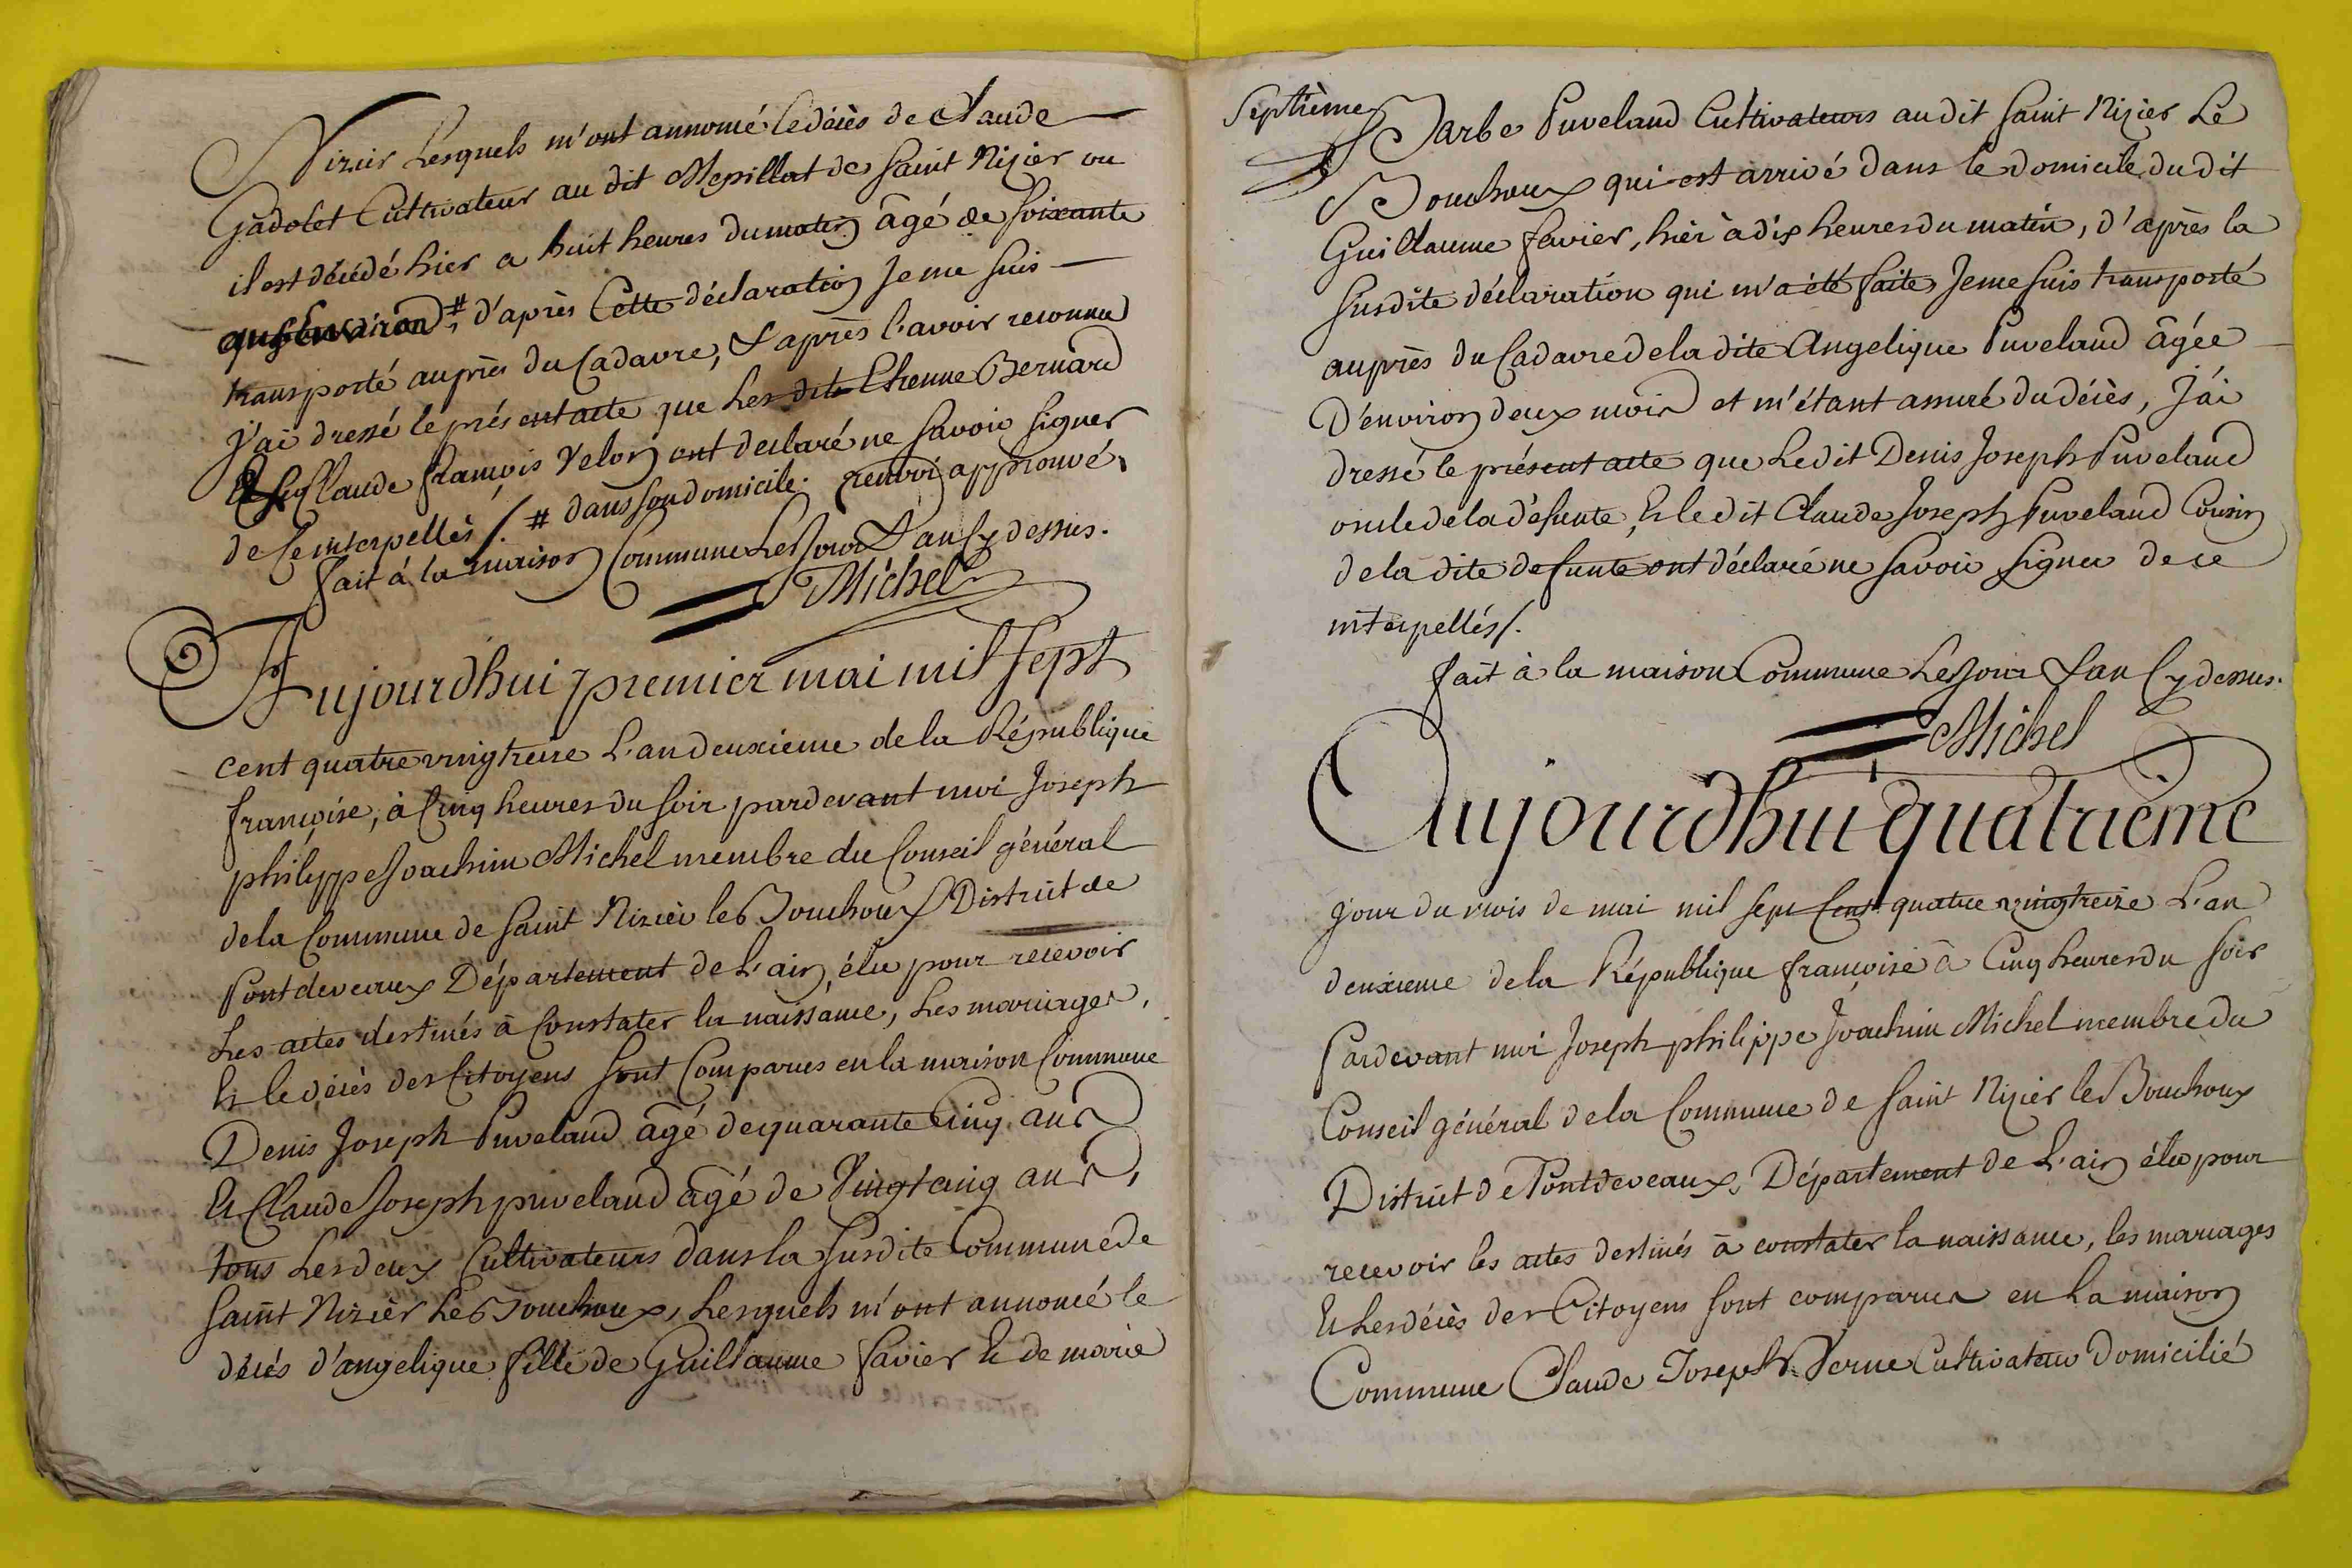 Nizier Lesquels m'ont annoncé le décès de Claude
Gadolet Cultivateur au dit Mepillat de Saint Nizier ou
il est décédé hier a huit heures du matin âgé de soixante
ans Environ #, d'après Cette déclaration Je me suis
transporté auprès du Cadavre, & après l'avoir reconnu
J'ai dressé le présent acte que Les dits Etienne Bernard
Et Claude François Velon ont declaré ne savoir signer
de Ce interpellés /. # dans son domicile. renvoi approuvé.
fait à la maison Commune Les Jour & an Cy dessus.
Michel
Aujourdhui premier mai mil sept
cent quatre vingt treize L'an deuxieme de la République
françoise, à Cinq heures du soir pardevant moi Joseph
philippe Joachim Michel membre du Conseil général
de la Commune de Saint Nizier le Bouchoux District de
Pontdevaux Département de L'ain, élu pour recevoir
Les actes destinés à Constater la naissance, Les mariages,
Et le décès des Citoyens sont Comparus en la maison Commune
Denis Joseph Puveland âgé de quarante Cinq ans
Et Claude Joseph puveland âgé de Vingt cinq ans,
tous Les deux Cultivateurs dans la Susdite Commune de
Saint Nizier Le Bouchoux, Lesquels m'ont annoncé le
décés d'angelique fille de Guillaume favier Et de marie
Septième
Barbe Puveland Cultivateurs au dit Saint Nizier Le
Bouchoux qui est arrivé dans le domicile du dit
Guillaume favier, hier à dix heures du matin, d'après la
Susdite déclaration qui m'a été faite, Je me suis transporté
auprès du Cadavre de la dite Angelique Puveland âgée
D'environ deux mois et m'étant assuré du décès, J'ai
dressé le présent acte que Le dit Denis Joseph Puveland
oncle de la défunte, Et le dit Claude Joseph Puveland Cousin
de la dite defunte ont déclaré ne savoir signer de ce
interpellés /.
fait à la maison Commune Les Jour & an Cy dessus.
Michel
Aujourdhui quatrième
jour du mois de mai mil sept Cent quatre vingt treize L'an
deuxieme de la République françoise à Cinq heures du soir
Pardevant moi Joseph philippe Joachim Michel membre du
Conseil général de la Commune de Saint Nizier le Bouchoux
District de Pontdeveaux, Département de L'ain élu pour
recevoir les actes destinés à constater la naissance, les mariages
Et Les décès des Citoyens sont comparus en La maison
Commune Claude Joseph Verne Cultivateur Domicilié